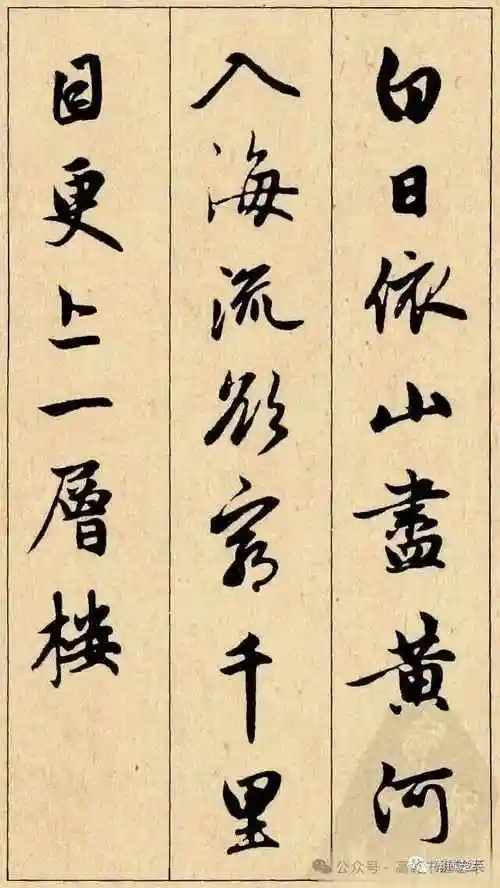 白日依山盡黄河
入海流欲窮千里
目更上一層楼
公众号